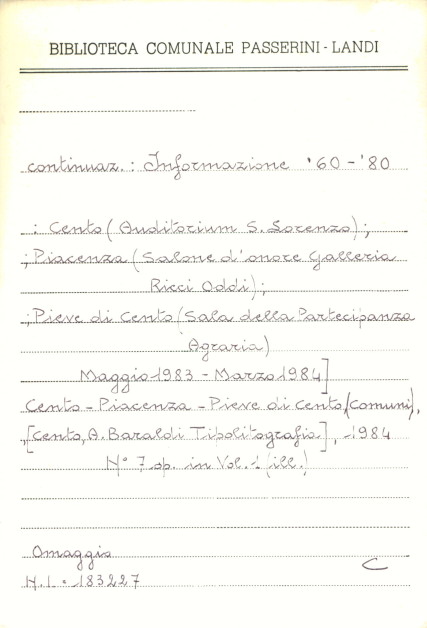 BIBLIOTECA COMUNALE PASSERINI - LANDI
continuaz.: Informazione '60 - '80
: Cento (Auditorium S. Lorenzo);
; Piacenza (Salone d'onore Galleria
Ricci Oddi);
; Pieve di Cento (Sala della Partecipanza
Agraria)
Maggio 1983 - Marzo 1984]
Cento - Piacenza - Pieve di Cento, (Comuni),
, [Cento, A. Baraldi Tipolitografia], 1984
N° 7 op. in Vol. 1 (ill.)
Omaggio
N.I. 183227
C